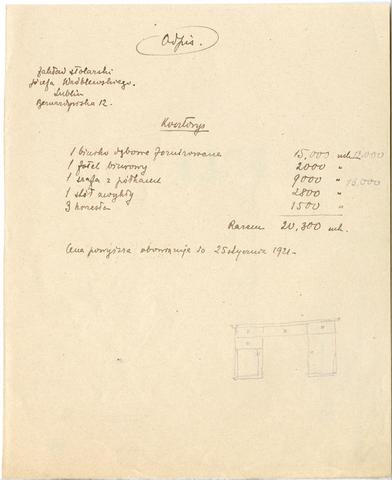 Odpis.
Zakład stolarski
Józefa Wróblewskiego.
Lublin
Bernardyńska 12.
Kosztorys
1 biurko dębowe fornirowane 15,000 mk 12,000
1 fotel biurowy 2000 "
1 szafa z półkami 9000 "
1 stół zwykły 2800 "
3 krzesła 1500 "
Razem 20,300 mk.
Cena powyższa obowiązuje do 25 stycznia 1921.-